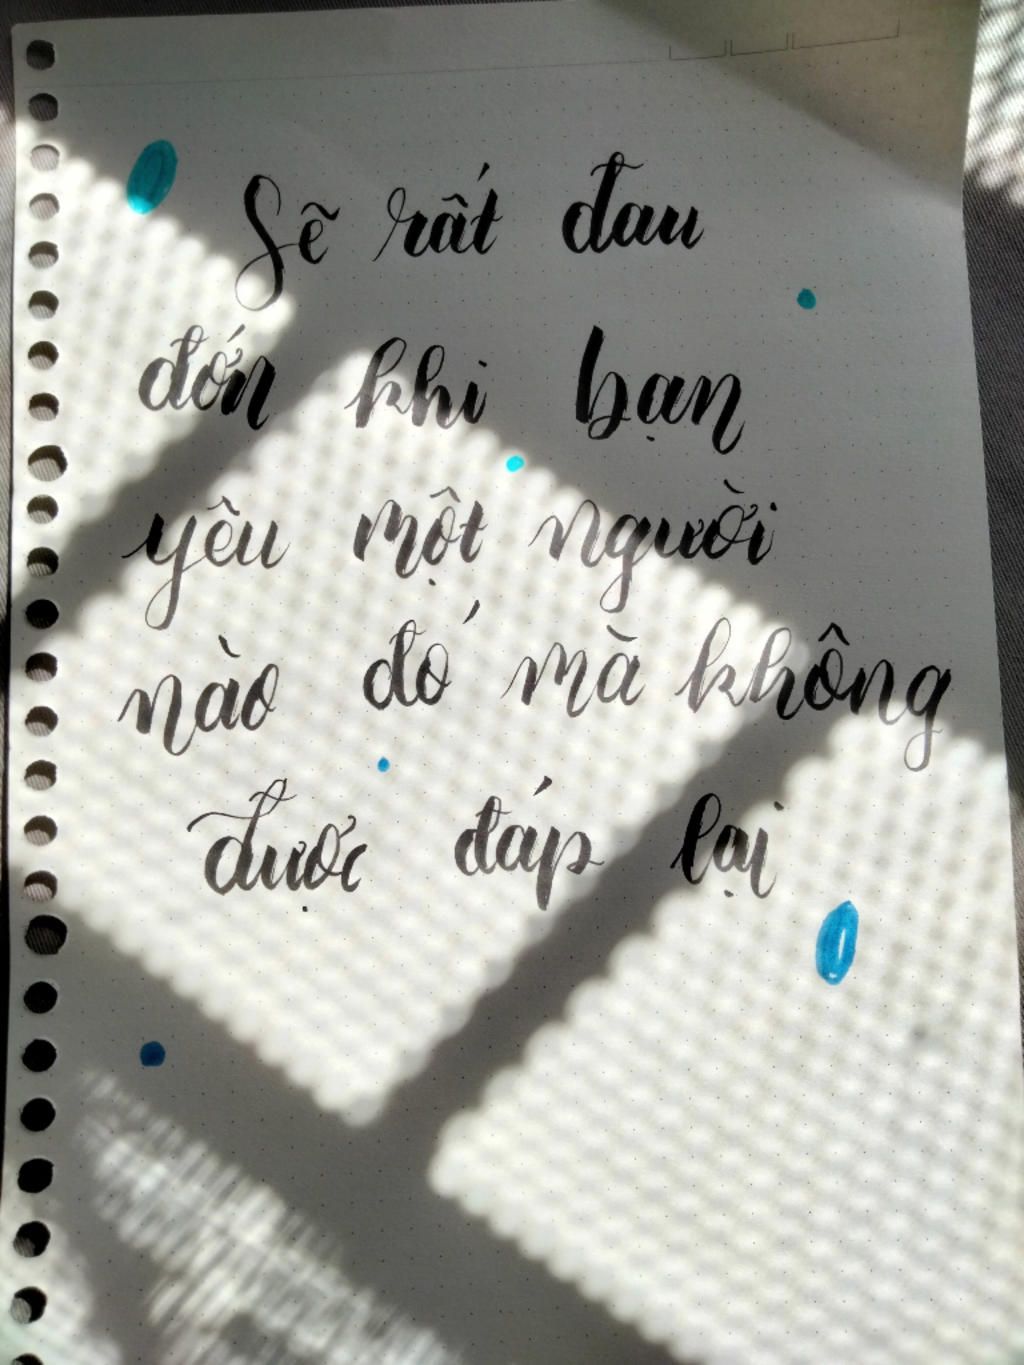 Sẽ rất đau
đớn khi bạn
yêu một người
nào đó mà không
được đáp lại